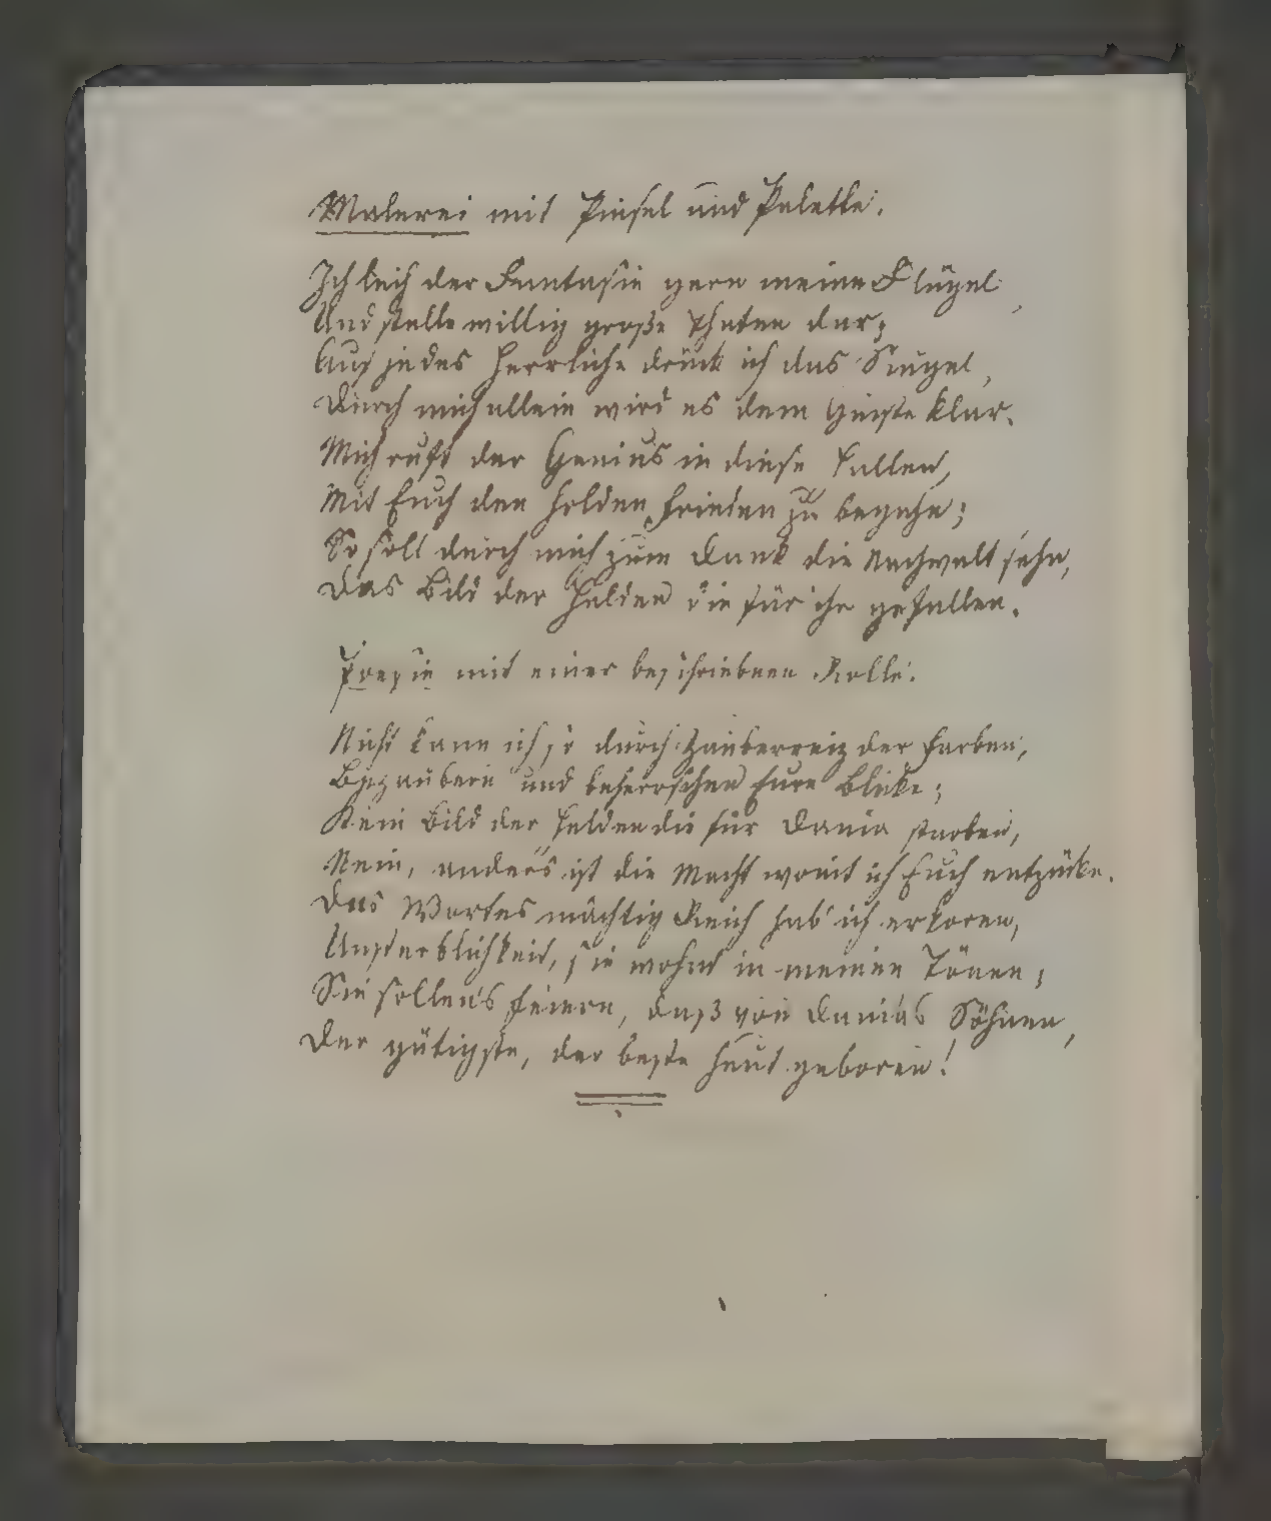 Malerei mit Pinsel und Palette.
Ich leih der Fantasie gern meine Flügel,
Und stelle willig große Thaten dar;
Auf jedes Herrliche drück ich das Siegel,
Durch mich allein wird es dem Geiste klar.
Mich ruft der Genius in diese Hallen,
Mit Euch den holden Frieden zu begehn;
So soll durch mich zum Dank die Nachwelt sehn,
Das Bild der Helden die für ihn gefallen.
Poesie mit einer beschriebnen Rolle.
Nicht kann ich so durch Zauberreiz der Farben,
Bezaubern und beherrschen Eure Blicke;
Kein Bild der Helden die für Dania starben,
Nein, anders ist die Macht womit ich Euch entzücke.
Das Wortes mächtig Reich hab' ich erkoren,
Unsterblichkeit, sie wohnt in meinen Tönen;
Sie sollen's feiern, daß von Danias Söhnen,
Der gütigste, der beste heut geboren!